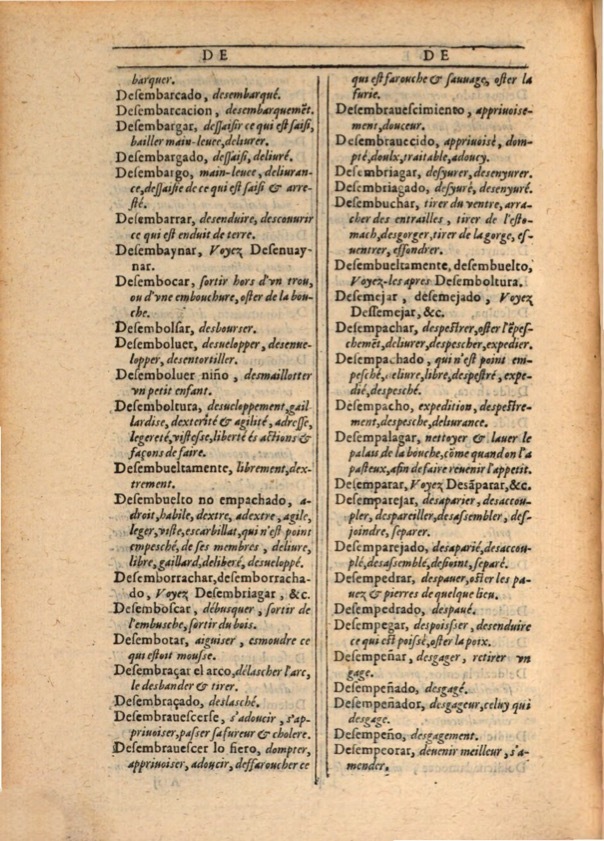 DE
barquer.
Desembarcado, desembarqué.
Desembarcacion, desembarquemẽt.
Desembargar, dessaisir ce qui est saisi,
bailler main-leuee, deliurer.
Desembargado, dessaisi, deliuré.
Desembargo, main-leuee, deliuran-
ce, dessaisie de ce qui est saisi & arre-
sté.
Desembarrar, desenduire, descouurir
ce qui est enduit de terre.
Desembaynar, Voyez Desenuay-
nar.
Desembocar, sortir hors d'vn trou,
ou d'vne embouchure, oster de la bou-
che.
Desembolsar, desbourser.
Desemboluer, desuelopper, desenue-
lopper, desentortiller.
Desemboluer niño, desmaillotter
vn petit enfant.
Desemboltura, desueloppement, gail-
lardise, dexterité & agilité, adresse,
legereté, vistesse, liberté és actions &
façons de faire.
Desembueltamente, librement, dex-
trement.
Desembuelto no empachado, a-
droit, habile, dextre, adextre, agile,
leger, viste, escarbillat, qui n'est point
empesché, de ses membres, deliure,
libre, gaillard, deliberé, desueloppé.
Desemborrachar, desemborracha-
do, Voyez Desembriagar, &c.
Desemboscar, débusquer, sortir de
l'embusche, sortir du bois.
Desembotar, aiguiser, esmoudre ce
qui estoit mousse.
Desembraçar el arco, délascher l'arc,
le desbander & tirer.
Desembraçado, deslasché.
Desembrauescerse, s'adoucir, s'ap-
priuoiser, passer sa fureur & cholere.
Desembrauescer lo fiero, dompter,
appriuoiser, adoucir, deffaroucher ce
DE
qui est farouche & sauuage, oster la
furie.
Desembrauescimiento, appriuoise-
ment, douceur.
Desembrauecido, appriuoisé, dom-
pté, doulx, traitable, adoucy.
Desembriagar, desyurer, desenyurer.
Desembriagado, desyuré, desenyuré.
Desembuchar, tirer du ventre, arra-
cher des entrailles, tirer de l'esto-
mach, desgorger, tirer de la gorge, es-
uentrer, effondrer.
Desembueltamente, desembuelto,
Voyez-les apres Desemboltura.
Desemejar, desemejado, Voyez
Dessemejar, &c.
Desempachar, despestrer, oster l'ẽpes-
chemẽt, deliurer, despescher, expedier.
Desempachado, qui n'est point em-
pesché, deliure, libre, despestré, expe-
dié, despesché.
Desempacho, expedition, despestre-
ment, despesche, deliurance.
Desempalagar, nettoyer & lauer le
palais de la bouche, cõme quand on l'a
pasteux, afin de faire reuenir l'appetit.
Desemparar, Voyez Desãparar, &c.
Desemparejar, desaparier, desaccou-
pler, despareiller, desassembler, des-
joindre, separer.
Desemparejado, desaparié, desaccou-
plé, desassemblé, desioint, separé.
Desempedrar, despauer, oster les pa-
uez & pierres de quelque lieu.
Desempedrado, despaué.
Desempegar, despoissser, desenduire
ce qui est poissé, oster la poix.
Desempeñar, desgager, retirer vn
gage.
Desempeñado, desgagé.
Desempeñador, desgageur, celuy qui
desgage.
Desempeño, desgagement.
Desempeorar, deuenir meilleur, s'a-
mender.